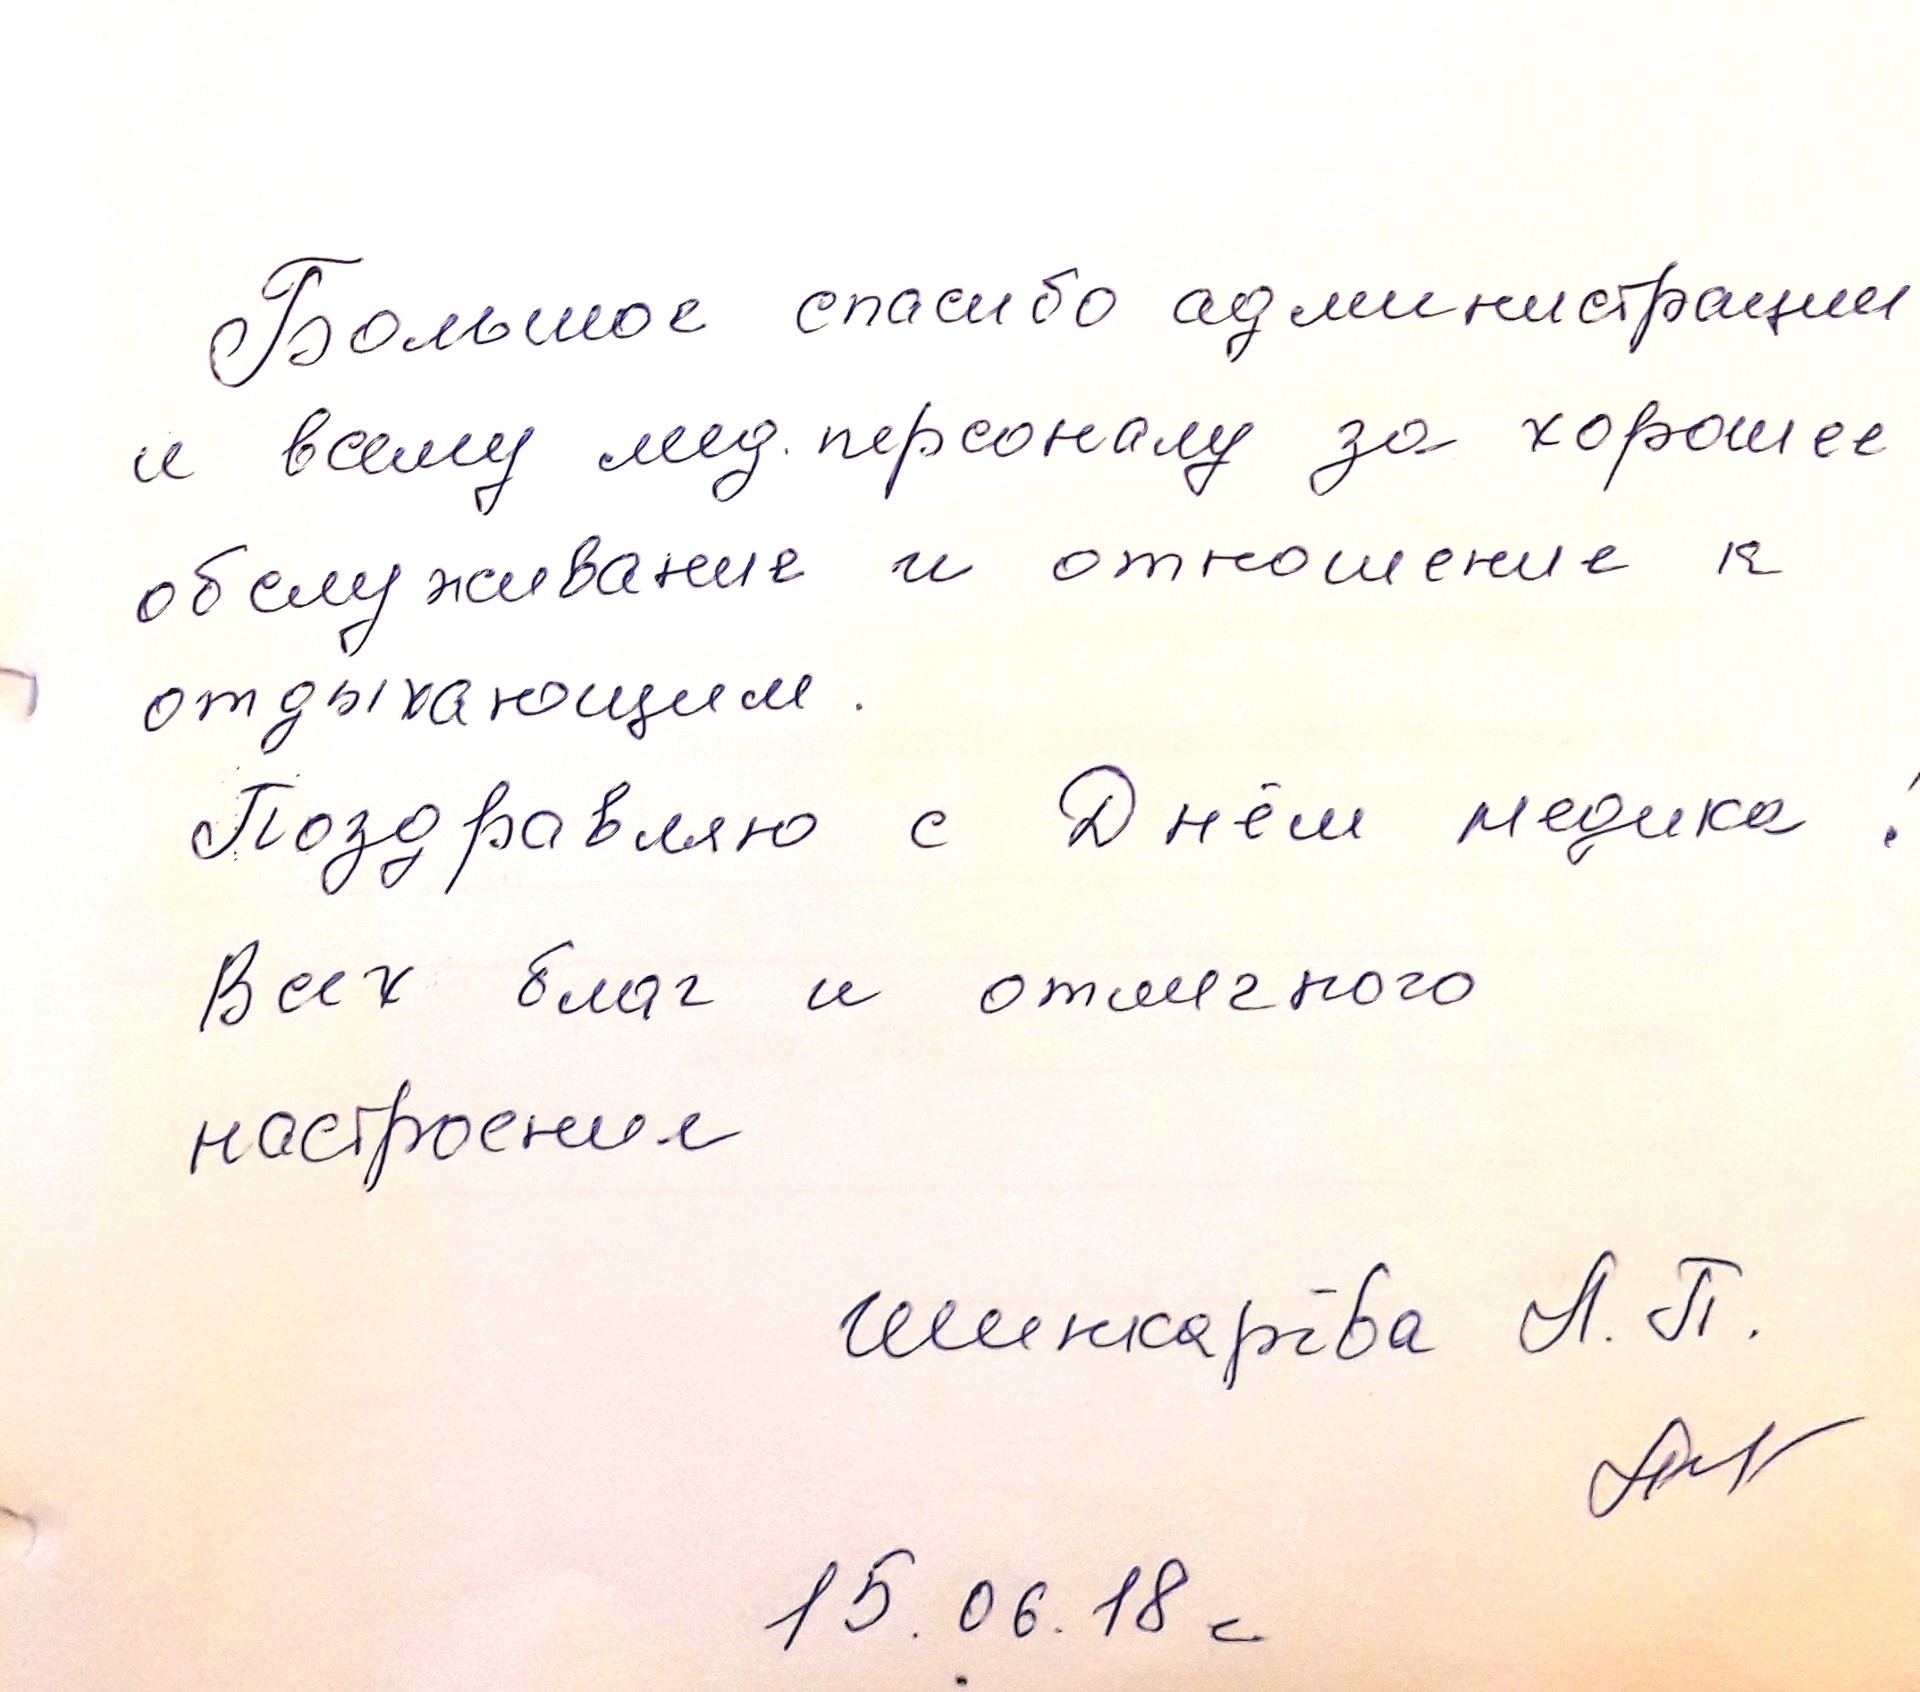 Большое спасибо администрации
и всему мед. персоналу за хорошее
обслуживание и отношение к
отдыхающим.
Поздравляю с Днём медика!
Всех благ и отличного
настроения
Шинкарёва Л. П.
15.06.18 г